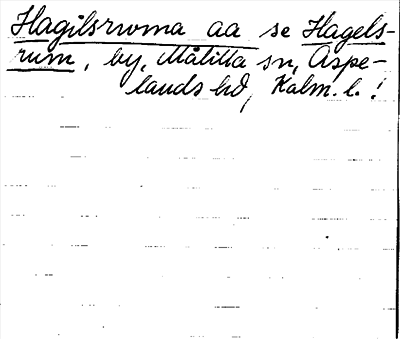 Hagilsrwma aa se Hagels-
rum, by, Målilla sn, Aspe-
lands hd, Kalm. l. !